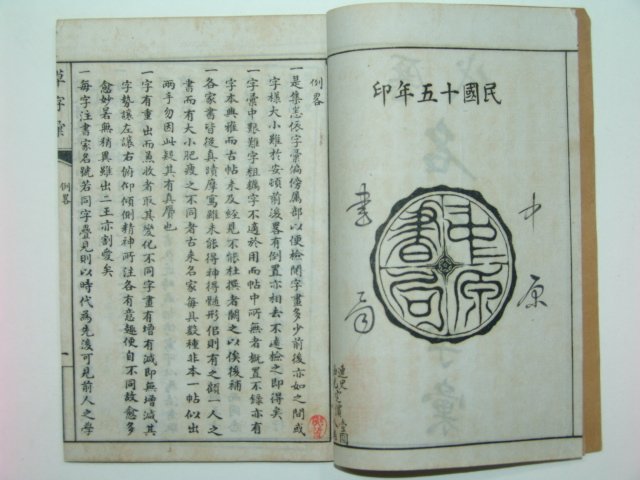 民國十五年印
中原
書局
中原書局
例畧
一是集悉依字彙偏傍属部以便檢閱字畫多少前後亦如之間或
字樣大小難於安頓前後畧有倒置亦相去不遠檢之即得矣
一字彙中艱難字粗糲字不適於用而帖中所無者概置不錄亦有
字本典雅而古帖未及經見不能杜撰者闕之以俟後補
一各家書皆從真蹟摩寫雖未能得神得髓形佀則有之顧一人之
書而有大小肥瘦之不同者古來名家每具數種並非本一帖似出
兩手勿因此疑其有真贋也
一字有重出而兼收者取其變化不同字畫有增有減即無增減其
字勢讓左讓右俯仰傾側精神所注各有意趣便自不同故愈多
愈妙若無稍異雖出二王亦割愛矣
一每字注書家名號若同字疊見則以時代為先後可見前人之學
草字彙
例畧
一